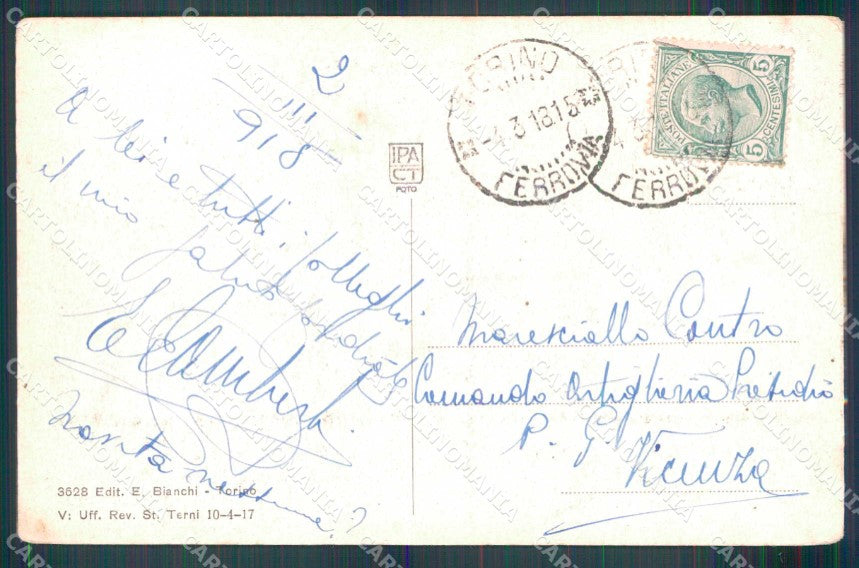 2
III
918
A lei e tutti i colleghi
il mio saluto cordiale
Novità nessuna?
3628 Edit. E. Bianchi - Torino
V; Uff. Rev. St. Terni 10-4-17
IPA
CT
FOTO
TORINO
-4 3 18 15
FERROVIA
FERROVIA
POSTE ITALIANE
5 CENTESIMI 5
Maresciallo Contro
Comando Artiglieria Presidio
P. G
Vicenza
CARTOLINOMANIA